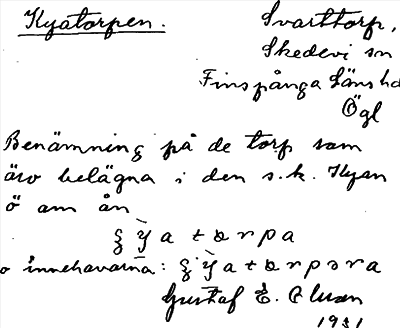 Kyatorpen.
Svarttorp,
Skedevi sn
Finspånga läns hd
Ögl
Benämning på de torp som
äro belägna i den s.k. Kyan
ö om ån
a t o r p a
o innehavarna: a t o r p a r a
Gustaf E.
1931